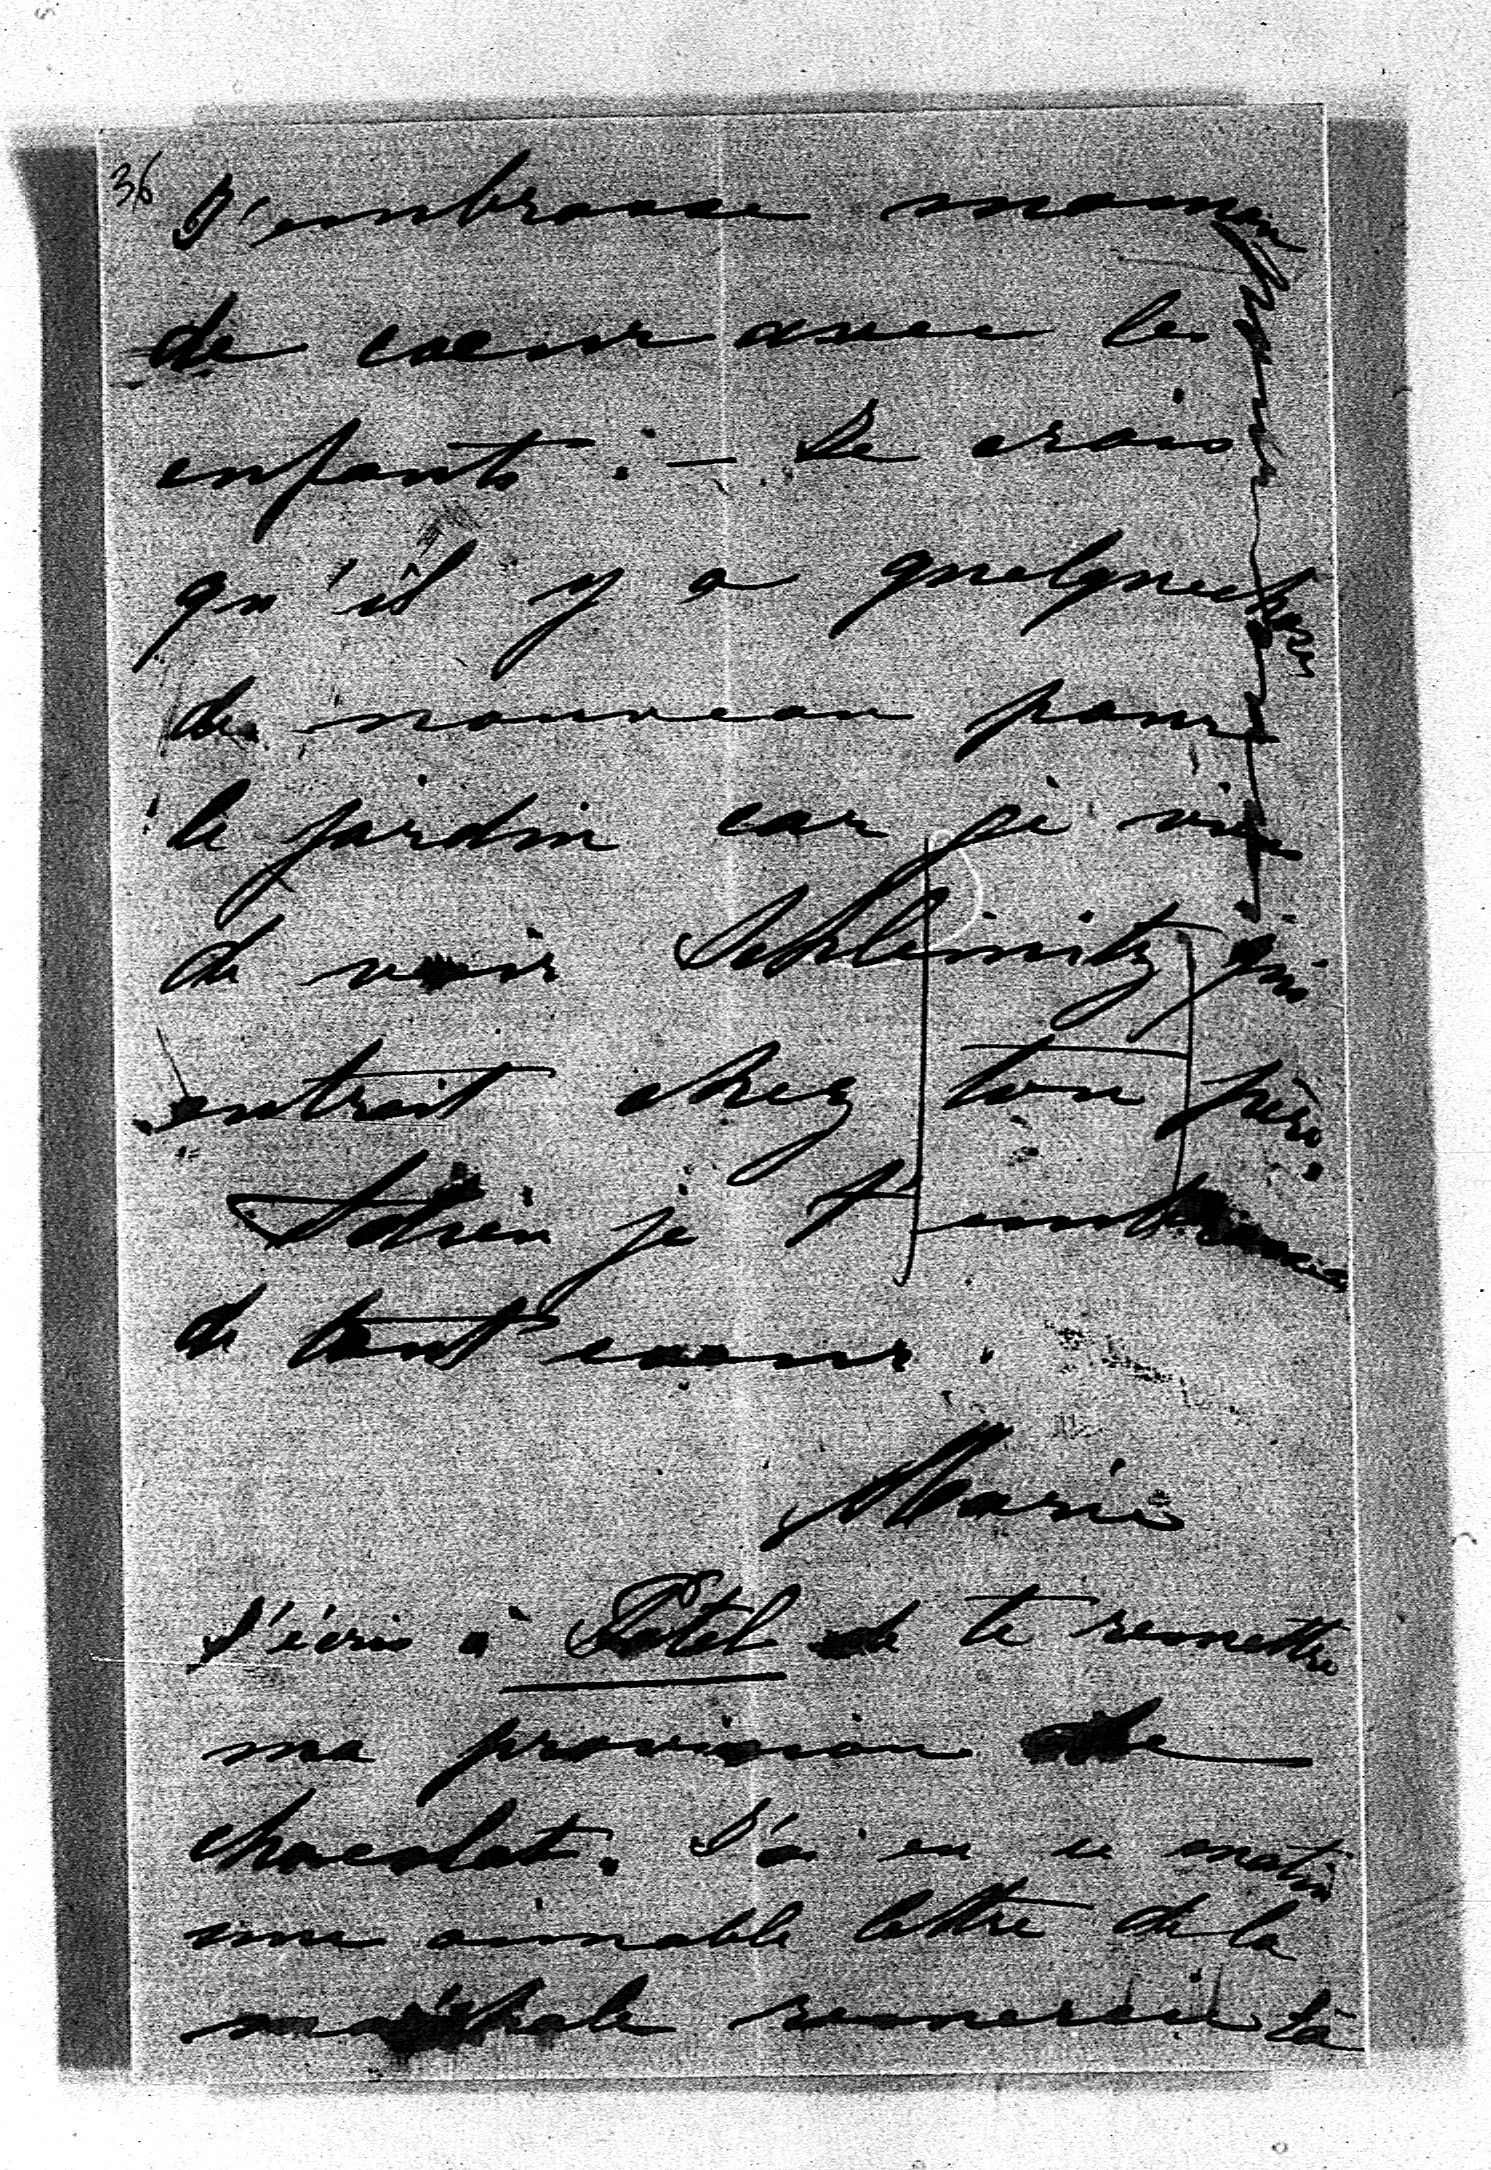 36
J'embrasse maman
de coeur avec les
enfants. — Je crois
qu'il y a quelquechose
de nouveau pour
le jardin car je viens
de voir Schleinitz qui
entrait chez ton père.
Adieu je t'embrasse
de tout coeur.
Marie
J'écris à Potel de te remettre
ma provision de
chocolat. J'ai eu ce matin
une aimable lettre de la
maréchale remercie la